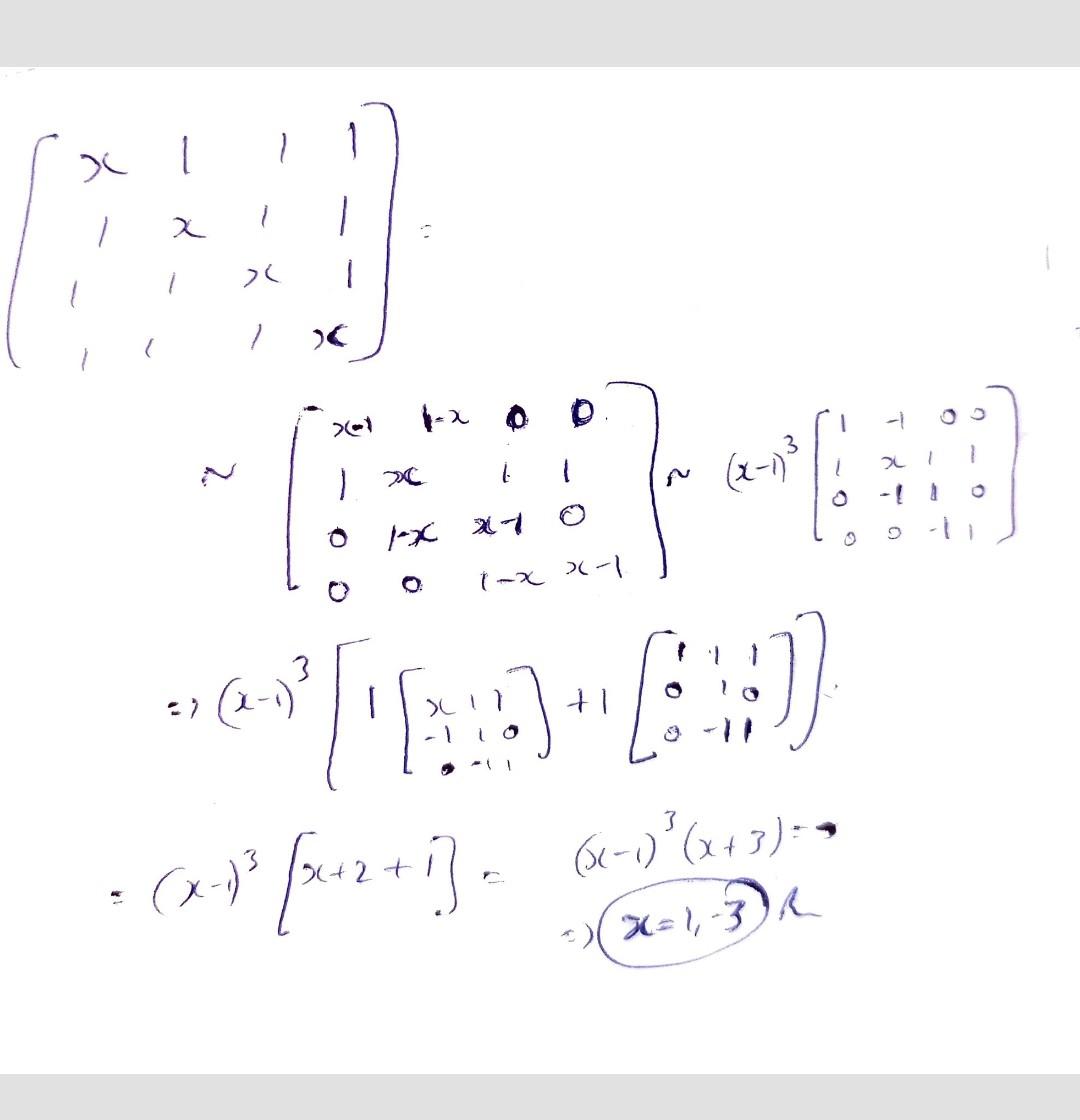 [ x 1 1 1
1 x 1 1
1 1 x 1
1 1 1 x ] =
~ [ x-1 1-x 0 0
1 x 1 1
0 1-x x-1 0
0 0 1-x x-1 ] ~ (x-1)³ [ 1 -1 0 0
1 x 1 1
0 -1 1 0
0 0 -1 1 ]
=> (x-1)³ [ 1 [ x 1 1
-1 1 0
0 -1 1 ] + 1 [ 1 1 1
0 1 0
0 -1 1 ] ]
= (x-1)³ [x+2+1] = (x-1)³ (x+3) =
=> x = 1, -3